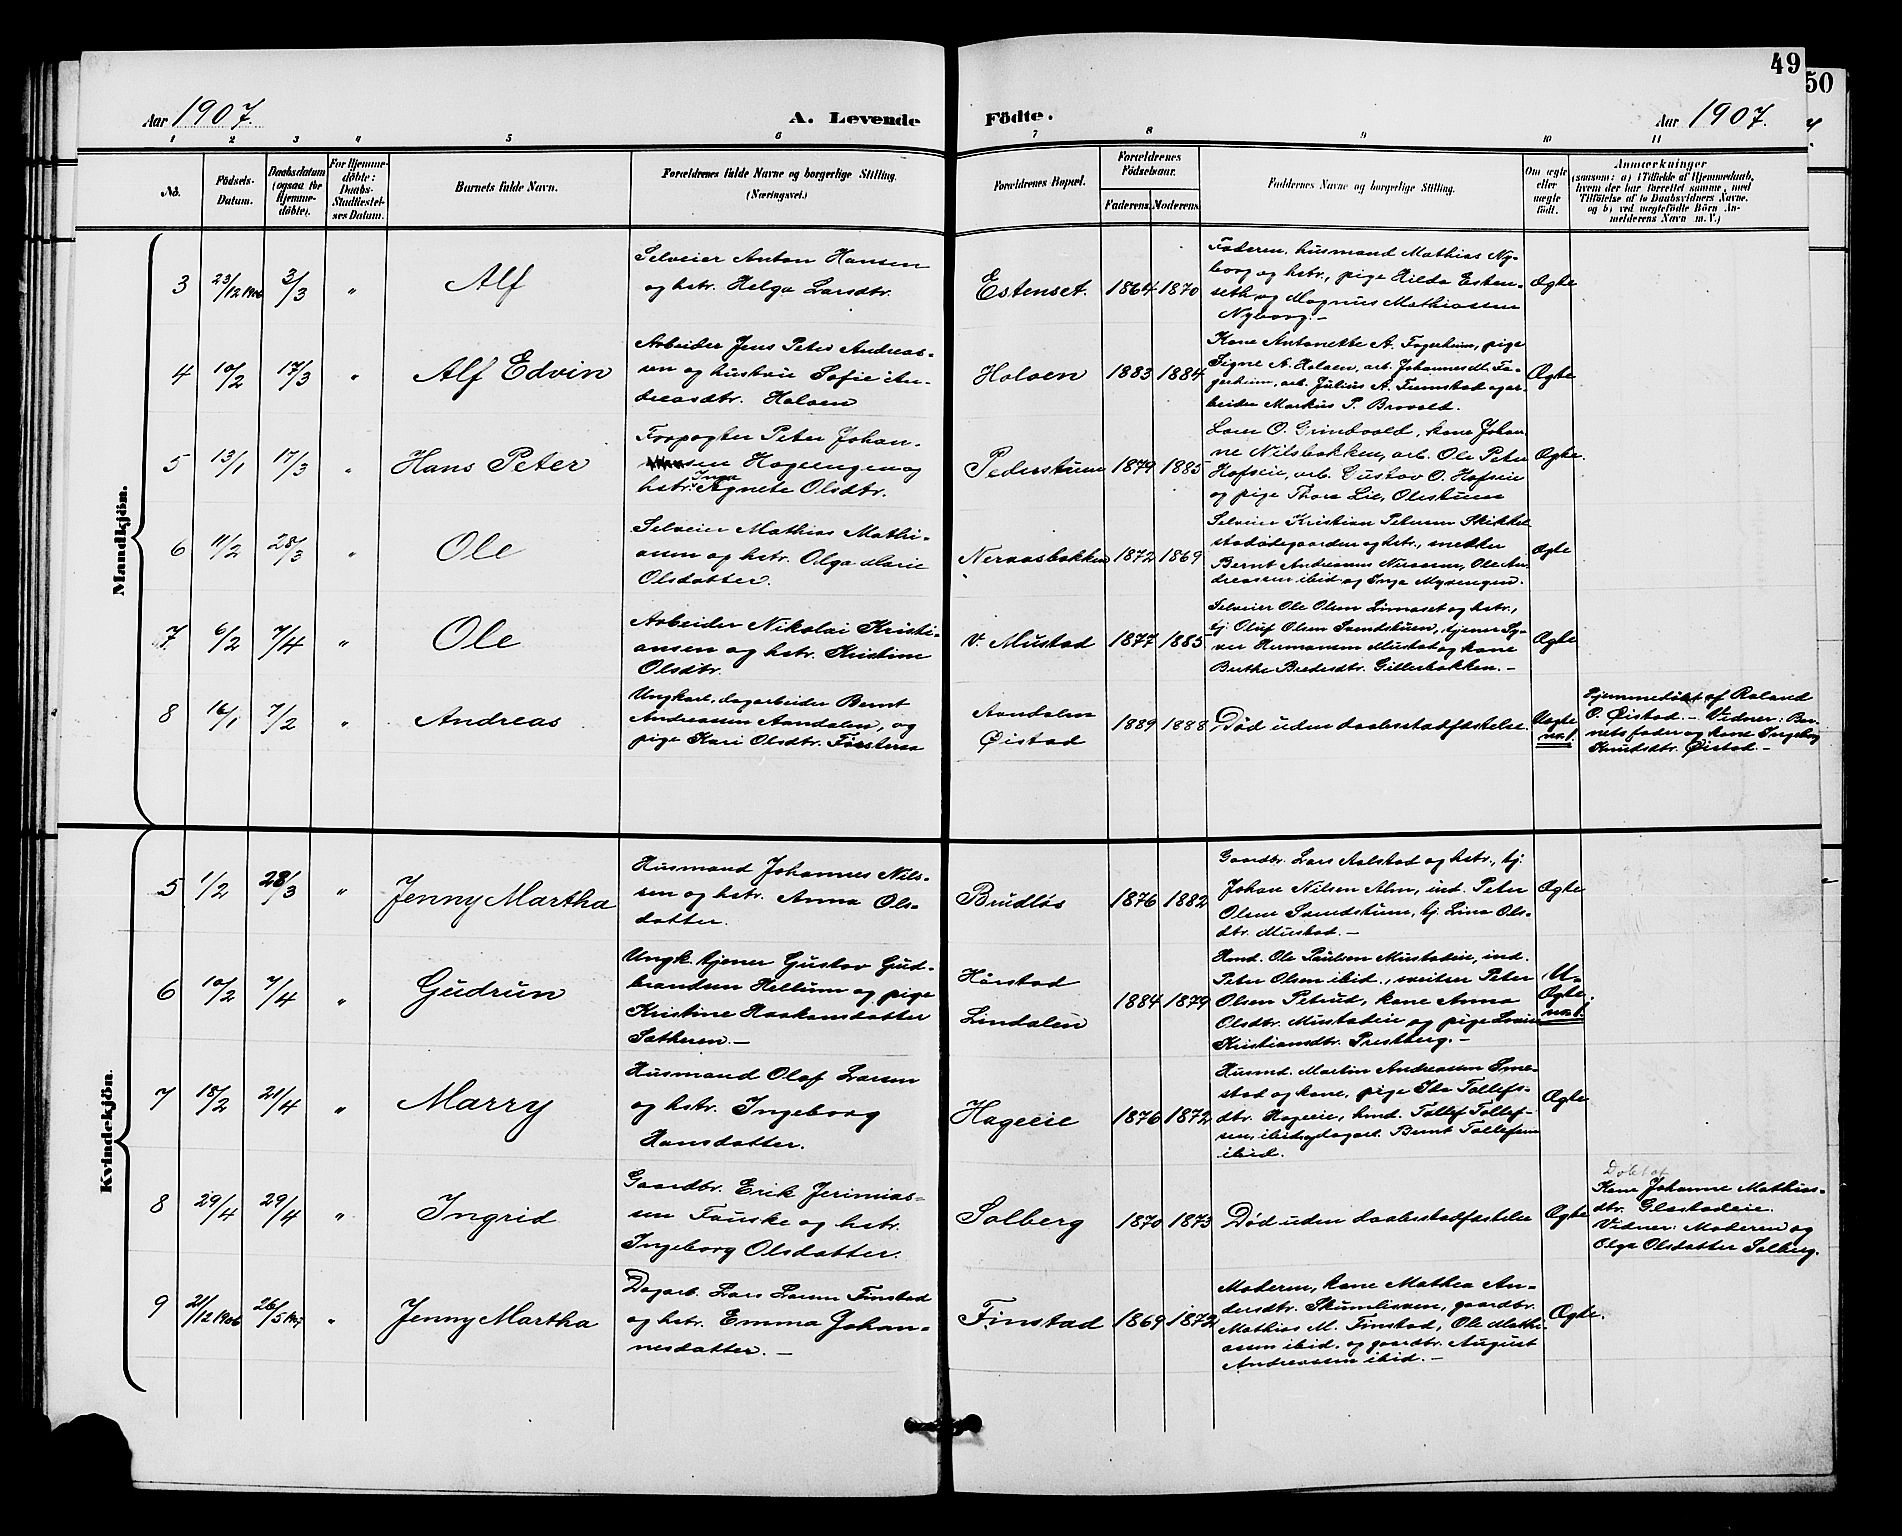 49
50
Aar 1907.
A. Levende Födte.
Aar 1907.
1 2 3 " 5 6 7 8 9 10 11
No.
Födsels-
Datum.
Daabsdatum
(ogsaa for
Hjemme-
döbte).
For Hjemme-
döbte:
Daabs-
Stadfæstel-
ses Datum.
Barnets fulde Navn.
Forældrenes fulde Navne og borgerlige Stilling.
(Næringsvei.)
Forældrenes Bopæl.
Forældrenes
Födselsaar.
Faderens. Moderens.
Faddernes Navne og borgerlige Stilling.
Om ægte
eller
uægte
födt.
Anmærkninger
(saasom: a) i Tilfælde af Hjemmedaab,
hvem der har forrettet samme, med
Tilföielse af to Daabsvidners Navne,
og b) ved uægtefödte Börn An-
melderens Navn m. V.)
Mandkjön.
3
23/12 1906
3/3
"
Alf
Selveier Anton Hansen
og hstr. Helga Larsdtr.
Estenset.
1864
1870
Faderen, husmand Mathias Ny-
borg og hstr., pige Hilda Esten-
seth og Magnus Mathiassen
Nyborg. -
Ægte
4
10/2
17/3
"
Alf Edvin
Arbeider Jens Peter Andreas-
sen og hustru Sofie An-
dreasdtr. Holoen
Holoen
1883
1884
Kone Antonette A. Fagerheim, pige
Signe A. Holoen, arb. Johannes M. Fa-
gerheim, arb. Julius A. Finnstad og ar-
beider Markus P. Brovold.
Ægte
5
13/1
17/3
"
Hans Peter
Forpagter Peter Johan-
sen Hageengen og
hstr. Inga Agnete Olsdtr.
Pederstuen
1879
1885
Lars O. Grindvold, kone Johan
ne Nilsbakken, arb. Ole Peter
Hofseie, arb. Gustav O. Hofseie
og pige Thora Lie, Olestuen
Ægte.
6
11/2
28/3
"
Ole
Selveier Mathias Mathi-
asen og hstr. Olga Marie
Olsdatter.
Neraasbakken
1872
1869
Selveier Kristian Petersen Skikkel
stadødegaarden og hstr., snekker
Bernt Andreassen Nusveen, Ole An
dreassen ibid og Inga Myrengen.
Ægte
7
6/2
7/4
"
Ole
Arbeider Nikolai Kristi-
ansen og hstr. Kristine
Olsdtr.
v. Mustad
1877
1885
Selveier Ole Olsen Linnaset og hstr.,
tj. Oluf Olsen Svendstuen, tjener Sy-
ver Hermansen Mustad og kone
Berthe Bredesdtr. Gillerbakken. -
Ægte
8
16/1
7/2
"
Andreas
Ungkarl, dagarbeider Bernt
Andreassen Aandalen, og
pige Kari Olsdtr. Førsteraa
Aandalen
Øistad
1889
1888
Død uden daabsstadfæstelse
Uægte
nr. 1.
Hjemmedøbt af Roland
O. Øistad. - Vidner: Bar-
nets fader og kone Ingeborg
Knudsdtr. Øistad -
Kvindekjön.
5
1/2
28/3
"
Jenny Martha
Husmand Johannes Nils-
sen og hstr. Anna Ols-
datter.
Brudløs
1876
1882
Gaardbr. Lars Aalstad og hstr., tj.
Johan Nilsen Alm, ind. Peter
Olsen Svendstuen, tj. Lina Ols-
dtr. Mustad. -
Ægte
6
10/2
7/4
"
Gudrun
Ungk. tjener Gustav Gud-
brandsen Hellum og pige
Kristine Haakonsdatter
Satheren. -
Hørstad
Lindalen
1884
1879
Hmd. Ole Paulsen Mustadeie, ind.
Peter Olsen ibid., sveitser Peter
Olsen Petrud, kone Anna
Olsdtr. Mustadeie og pige Lovise
Kristiansdtr. Prestberg. -
U-
Ægte
nr. 1.
7
18/2
21/4
"
Marry
Husmand Olaf Larsen
og hstr. Ingeborg
Hansdatter.
Hageeie
1876
1872
Husmd. Martin Andreassen Sme-
stad og kone, pige Ida Tollefs-
dtr. Hageeie, hmd. Tollef Tollef-
sen, ibid og dagarb. Bernt Tollefsen
ibid.
Ægte
8
29/4
29/4
"
Ingrid
Gaardbr. Erik Jerimias-
sen Fauske og hstr.
Ingeborg Olsdatter.
Solberg
1870
1873
Død uden daabsstadfæstelse
Ægte
Døbt af
Kone Johanne Mathias-
dtr. Glæstadeie.
Vidner: Moderen og
Olga Olsdatter Solberg.
9
21/12 1906
26/5 1907
"
Jenny Martha
Dagarb. Lars Larsen Finstad
og hstr. Emma Johan-
nesdatter. -
Finstad
1869
1872
Moderen, kone Mathea An-
dersdtr. Skumlisveen, gaardbr.
Mathias M. Finstad, Ole Mathi-
assen ibid. og gaardbr. August
Andreassen ibid. -
Ægte.